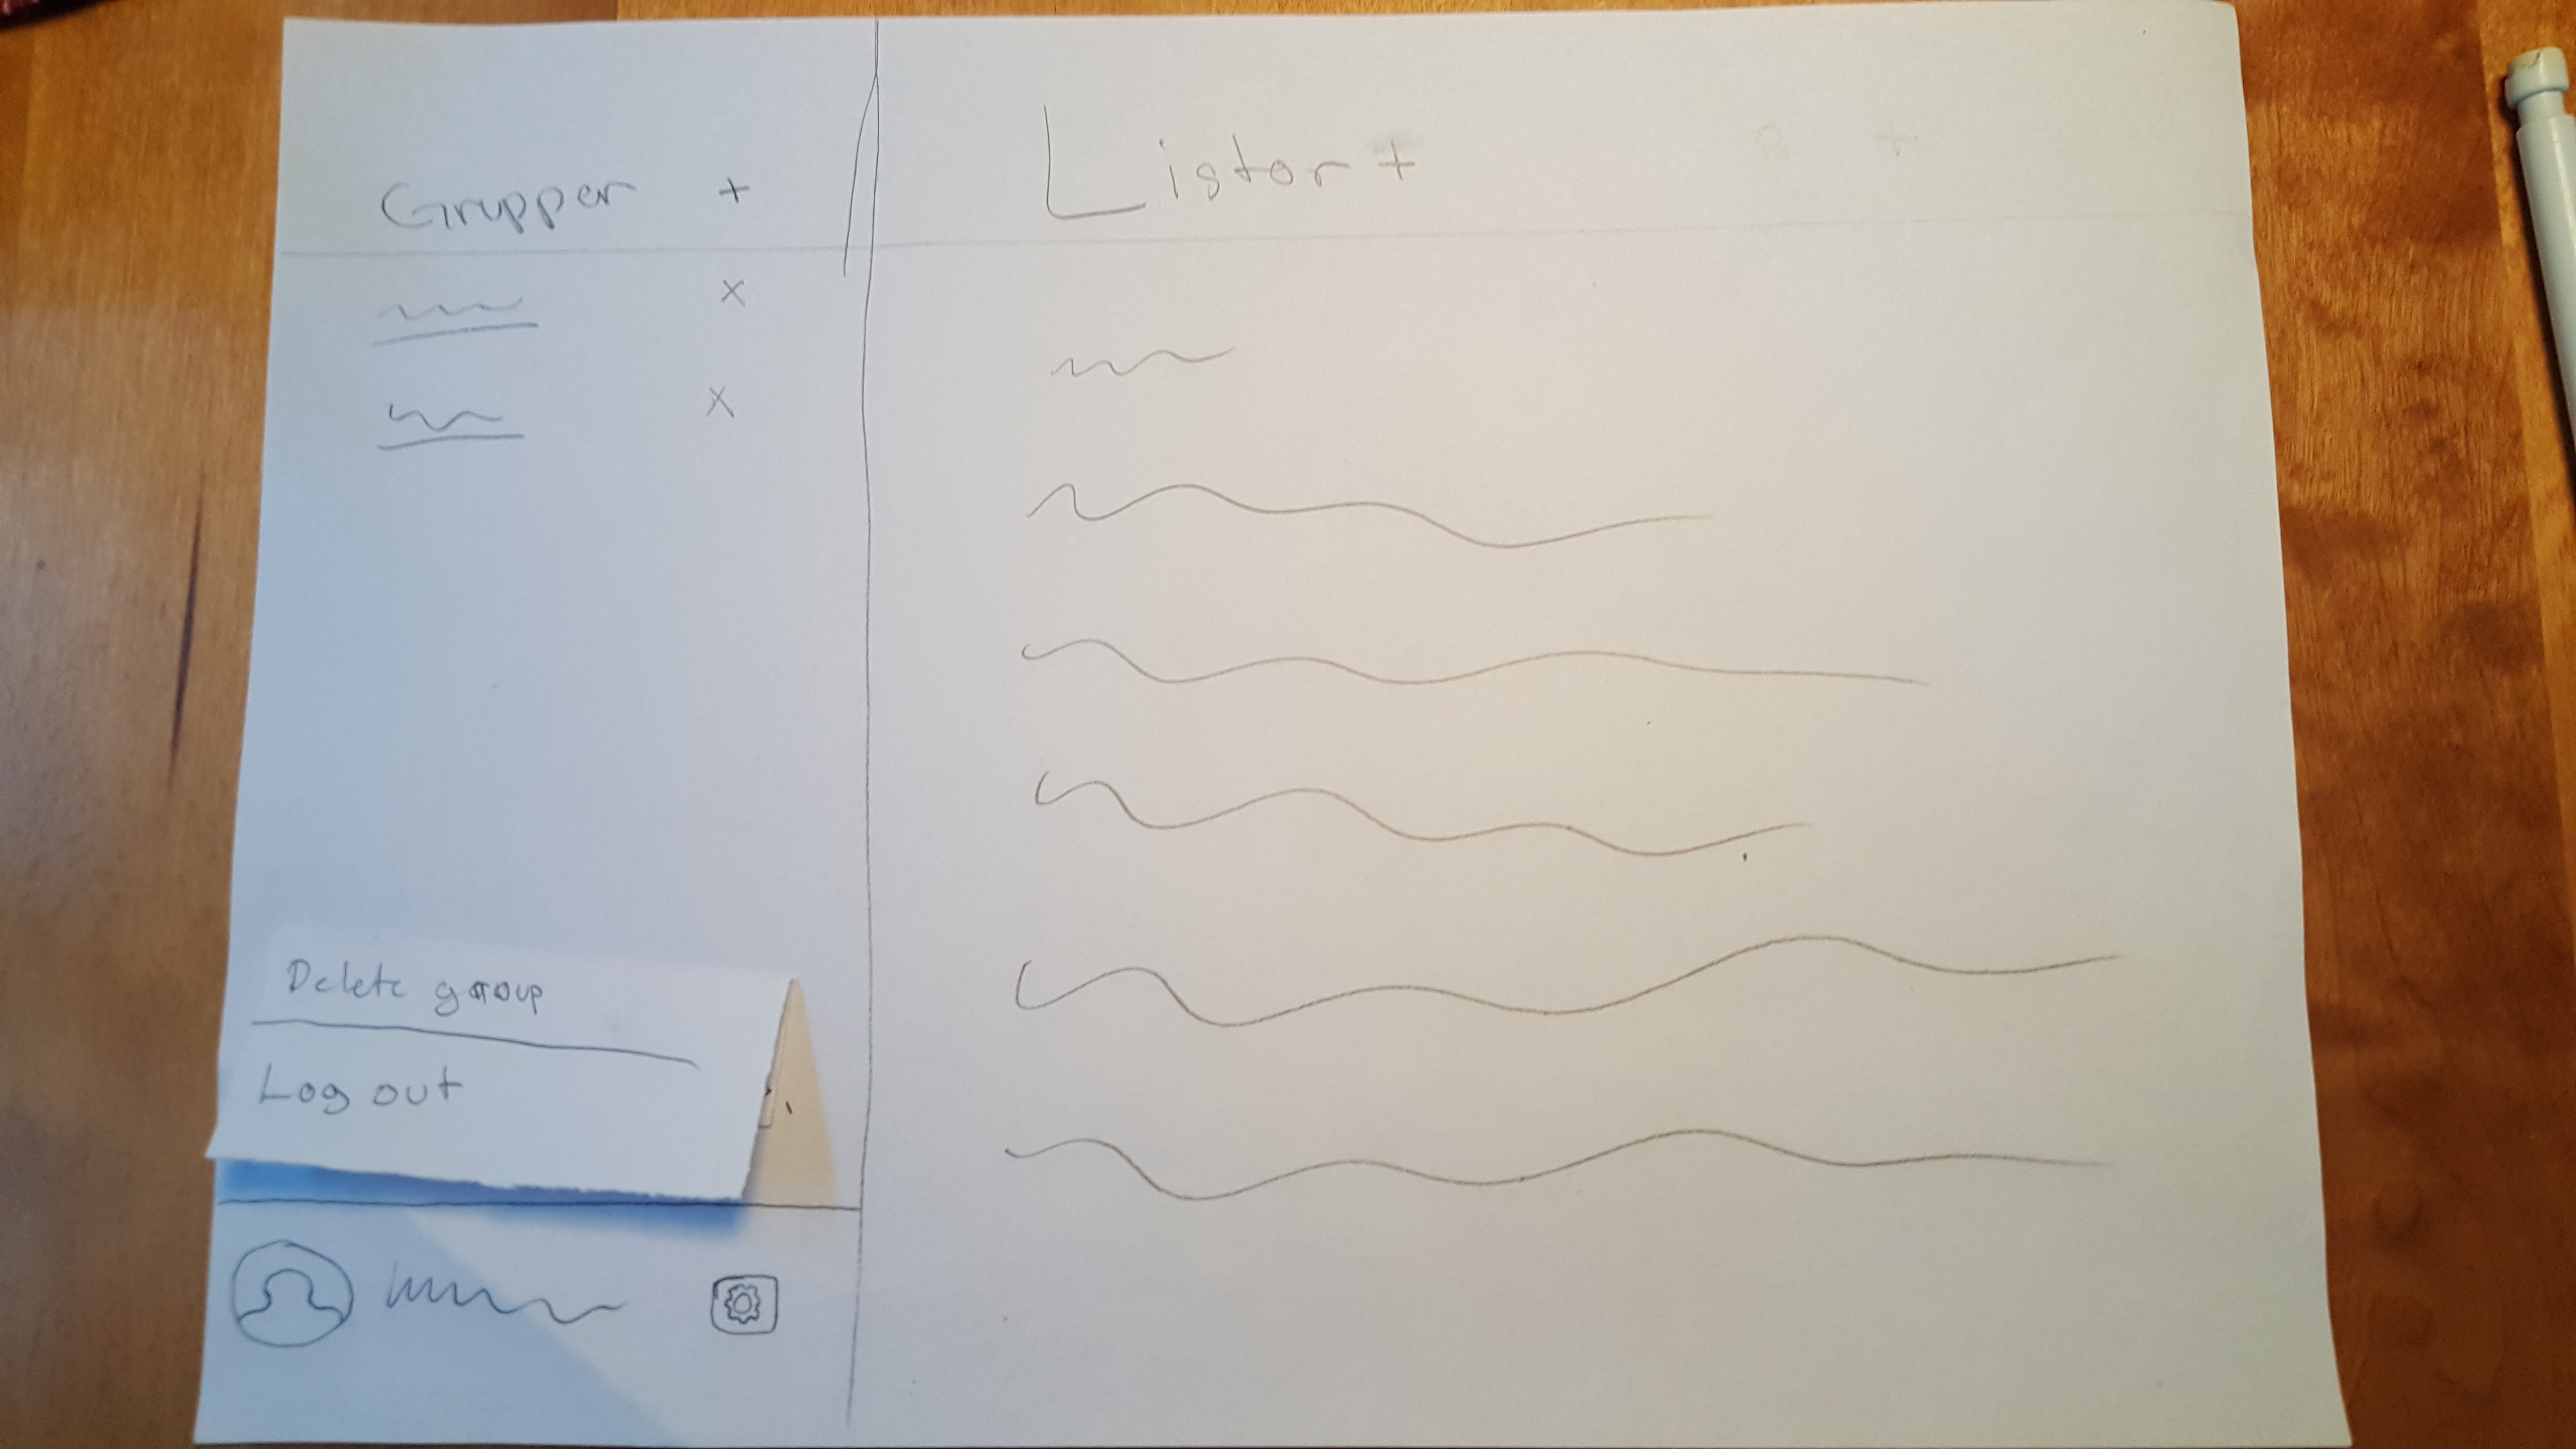 Grupper +
x
x
Delete group
Log out
Listor +